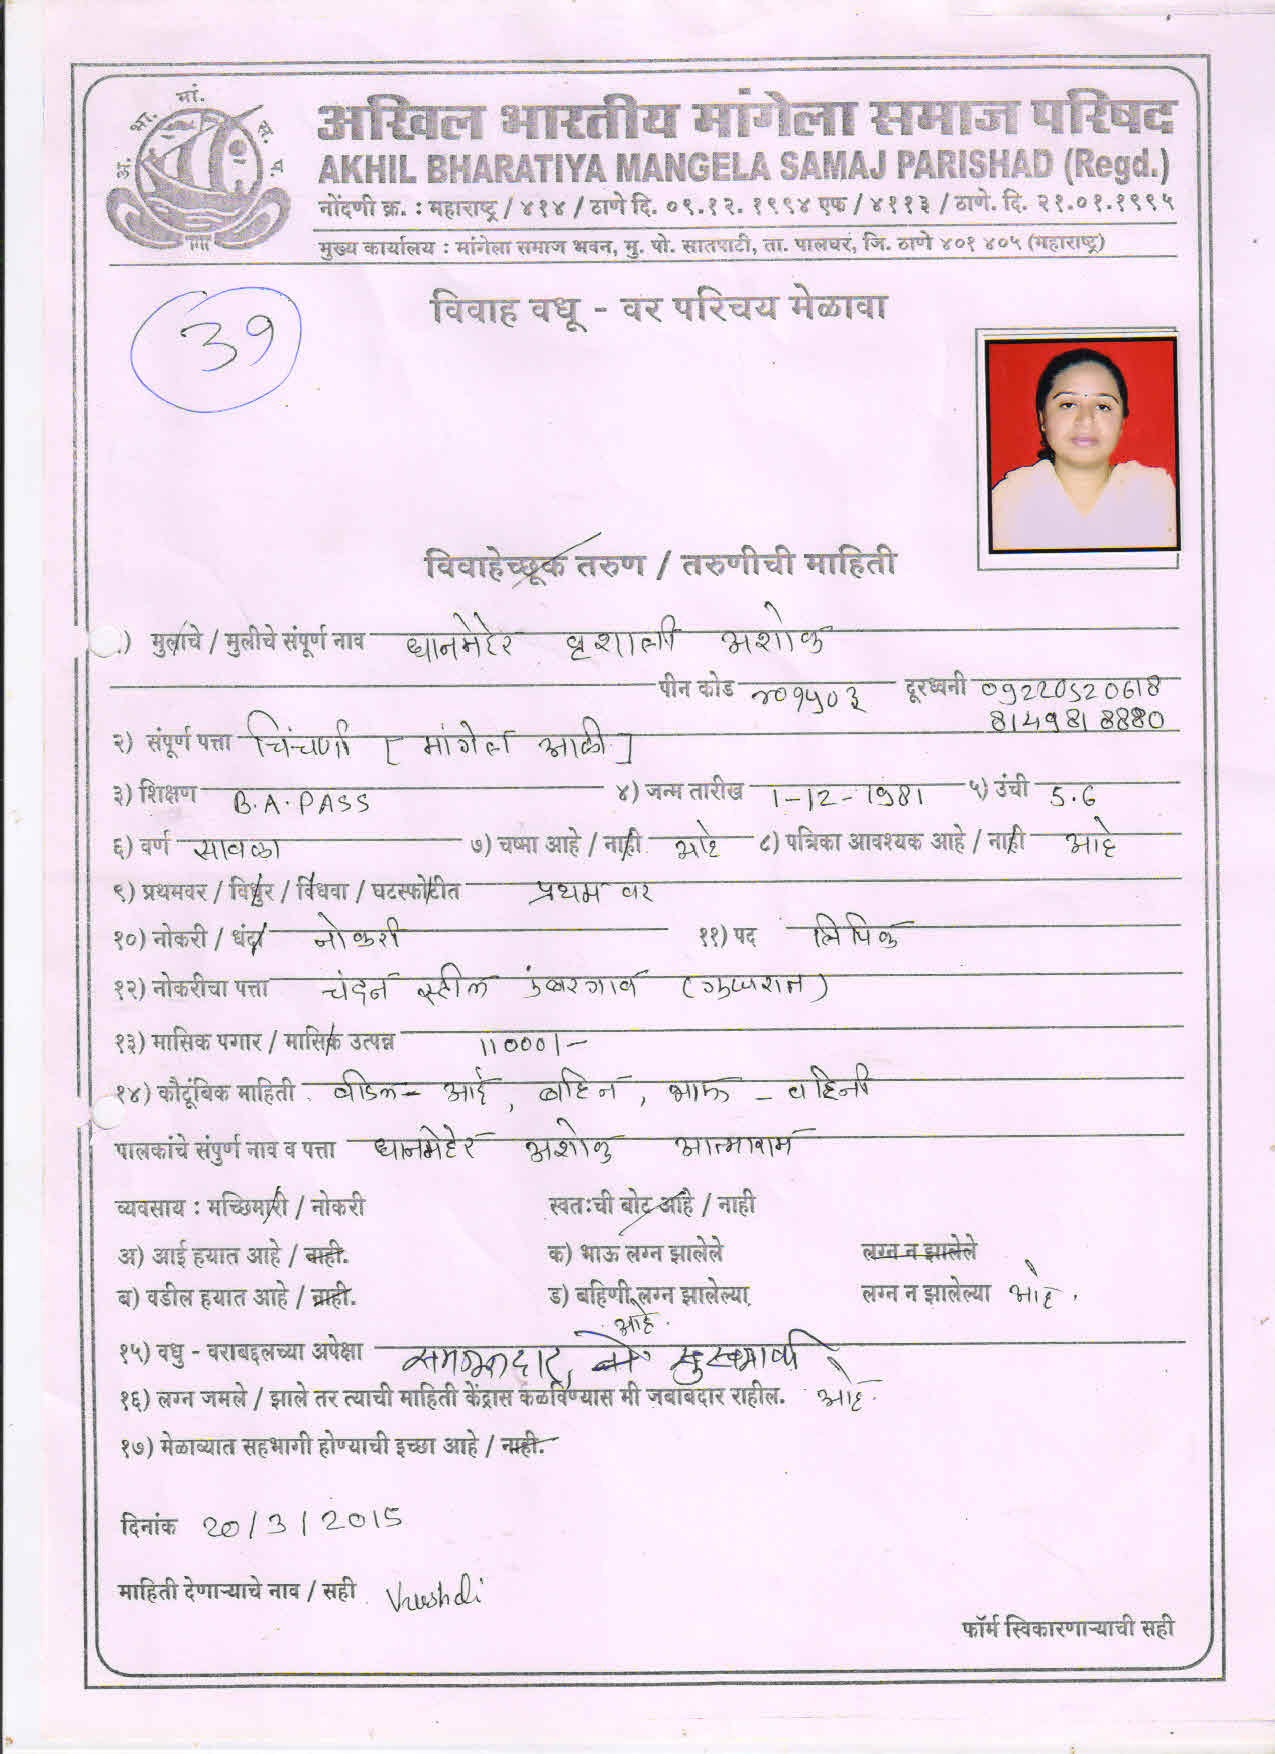 अ. भा. मां. स. प.
अखिल भारतीय मांगेला समाज परिषद
AKHIL BHARATIYA MANGELA SAMAJ PARISHAD (Regd.)
नोंदणी क्र. : महाराष्ट्र / ४१४ / ठाणे दि. ०९.१२. १९९४ एफ / ४११३ / ठाणे. दि. २१.०१.१९९५
मुख्य कार्यालय : मांगेला समाज भवन, मु. पो. सातपाटी, ता. पालघर, जि. ठाणे ४०१ ४०५ (महाराष्ट्र)
विवाह वधू - वर परिचय मेळावा
39
विवाहेच्छूक तरुण / तरुणीची माहिती
) मुलाचे / मुलीचे संपूर्ण नाव धानमेहेर वृशाली अशोक
पीन कोड ४०१५०३ दूरध्वनी 09220520618
8149818880
२) संपूर्ण पत्ता चिंचणी [ मांगेला आळी ]
३) शिक्षण B.A.PASS ४) जन्म तारीख 1-12-1981 ५) उंची 5.6
६) वर्ण सावळा ७) चष्मा आहे / नाही आहे ८) पत्रिका आवश्यक आहे / नाही आहे
९) प्रथमवर / विधुर / विधवा / घटस्फोटीत प्रथम वर
१०) नोकरी / धंदा नोकरी ११) पद लिपिक
१२) नोकरीचा पत्ता चंदन स्टील उंबरगाव (गुजरात)
१३) मासिक पगार / मासिक उत्पन्न 11000/-
१४) कौटूंबिक माहिती वडिल - आई, बहिन, भाऊ - वहिनी
पालकांचे संपुर्ण नाव व पत्ता धानमेहेर अशोक आत्माराम
व्यवसाय : मच्छिमारी / नोकरी स्वतःची बोट आहे / नाही
अ) आई हयात आहे / नाही. क) भाऊ लग्न झालेले लग्न न झालेले
ब) वडील हयात आहे / नाही. ड) बहिणी लग्न झालेल्या लग्न न झालेल्या आहे.
आहे.
१५) वधु - वराबद्दलच्या अपेक्षा समजूतदार, सुस्वभावी
१६) लग्न जमले / झाले तर त्याची माहिती केंद्रास कळविण्यास मी जबाबदार राहील. आहे.
१७) मेळाव्यात सहभागी होण्याची इच्छा आहे / नाही.
दिनांक 20/3/2015
माहिती देणाऱ्याचे नाव / सही Vrushali
फॉर्म स्विकारणाऱ्याची सही